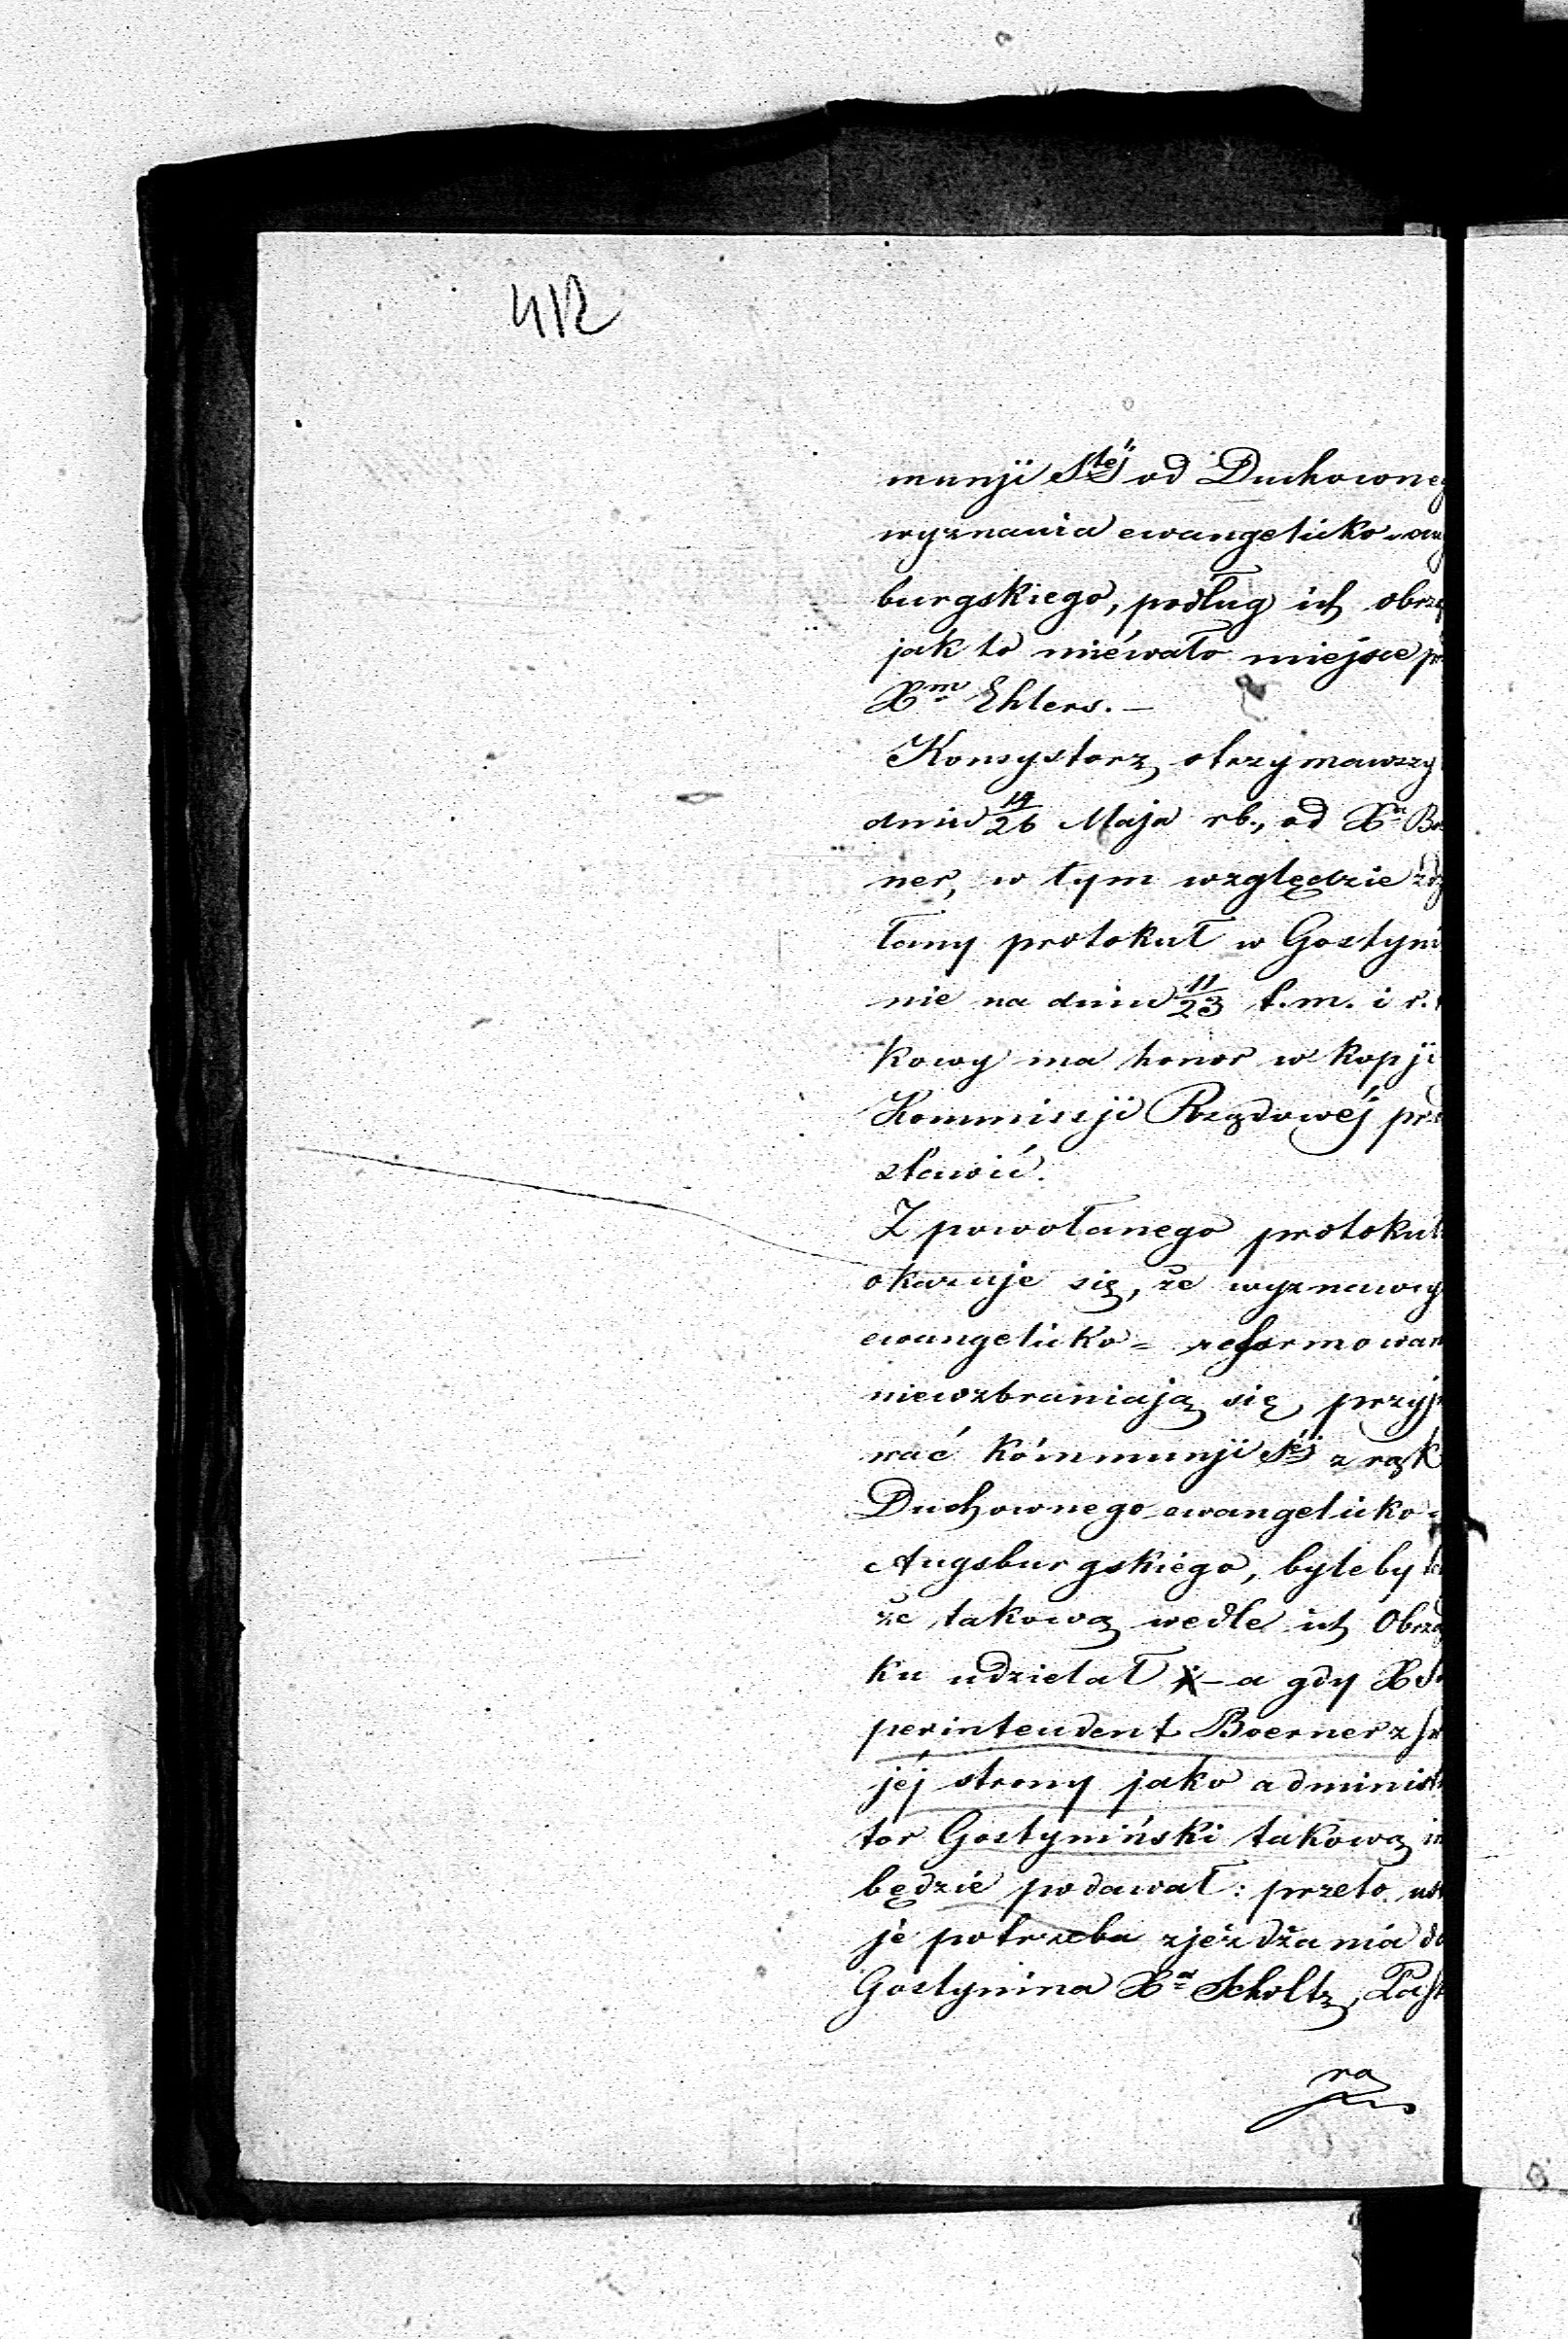 412
munji Stéj od Duchowneg
wyznania ewangelicko-aug
burgskiego, podług ich obrzę
jak to miéwało miejsce p
Xm Ehlers. —
Konsystorz otrzymawszy
dniu 14/26 Maja rb., od Xa Bo
ner, w tym względzie zdz
łany protokuł w Gostyni
nie na dniu 11/23 t.m. i r.
kowy ma honor w kopji
Kommissji Rządowéj prze
stawić.
Z powołanego protokułu
okazuje się, że wyznawcy
ewangelicko=reformowan
niewzbraniają się przyj
wać kommunji Stéj z rąk
Duchownego ewangelicko-
Augsburgskiego, byleby te
że takową wedle ich Obrzą
ku udzielał - a gdy X Su
perintendent Boerner z sw
jéj strony jako administr
tor Gostyniński takową im
będzie podawał: przeto ust
je potrzeba zjeżdżania do
Gostynina Xa Scholtz, Past
ra